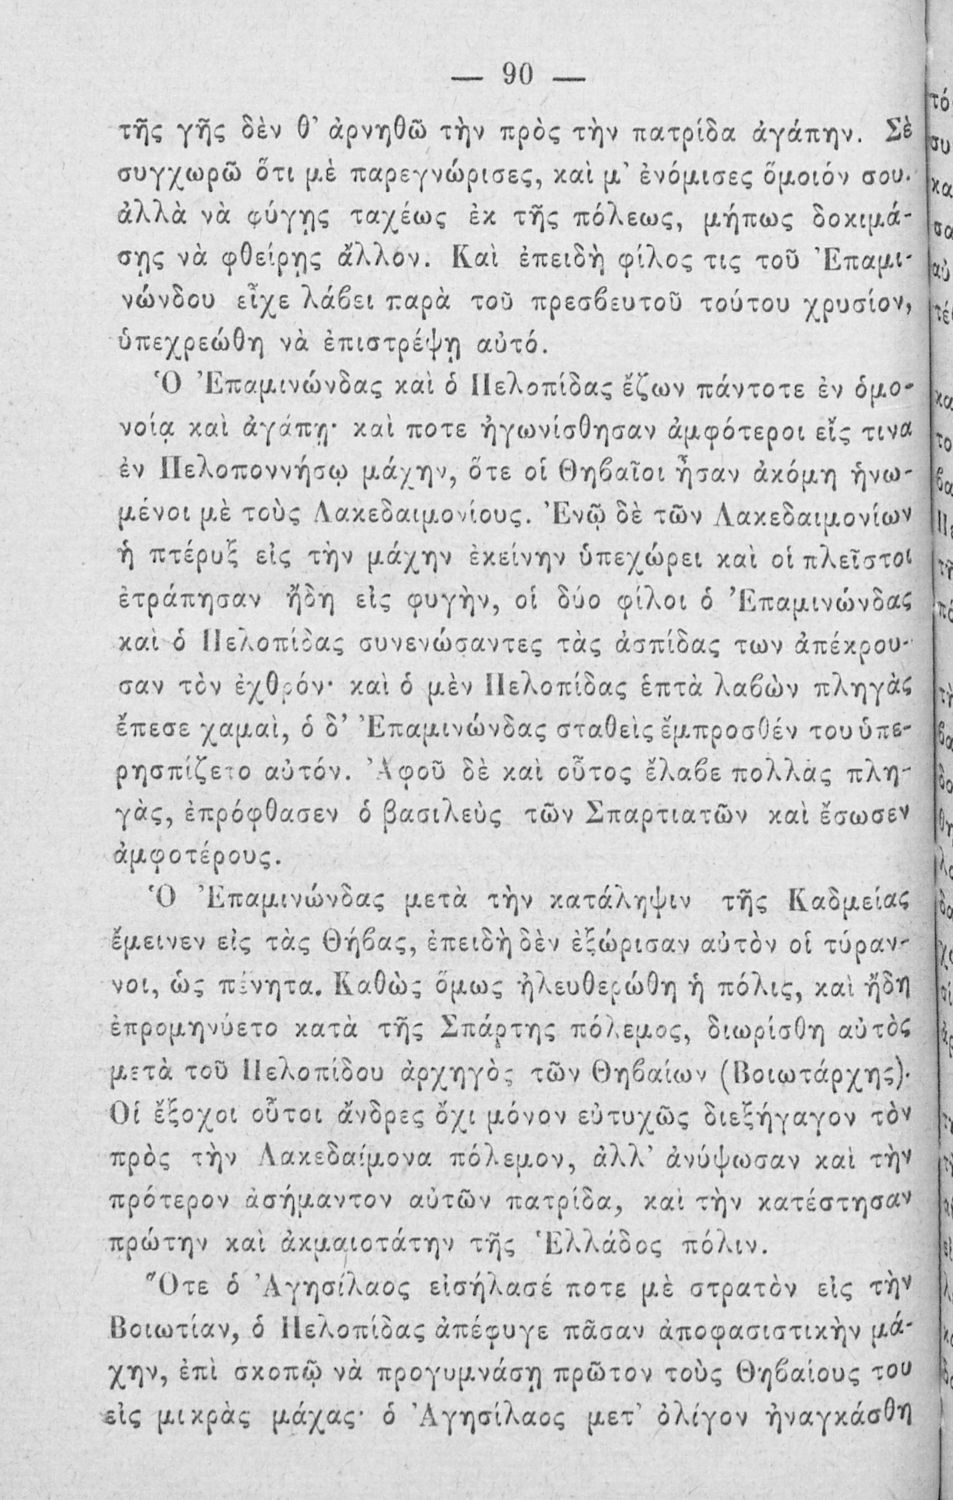 — 90 —
τῆς γῆς δὲν θ' ἀρνηθῶ τὴν πρὸς τὴν πατρίδα ἀγάπην. Σὲ
συγχωρῶ ὅτι μὲ παρεγνώρισες, καὶ μ' ἐνόμισες ὅμοιόν σου·
ἀλλὰ νὰ φύγῃς ταχέως ἐκ τῆς πόλεως, μήπως δοκιμά-
σῃς νὰ φθείρῃς ἄλλον. Καὶ ἐπειδὴ φίλος τις τοῦ Ἐπαμι-
νώνδου εἶχε λάβει παρὰ τοῦ πρεσβευτοῦ τούτου χρυσίον,
ὑπεχρεώθη νὰ ἐπιστρέψῃ αὐτό.
Ὁ Ἐπαμινώνδας καὶ ὁ Πελοπίδας ἔζων πάντοτε ἐν ὁμο-
νοίᾳ καὶ ἀγάπῃ· καὶ ποτε ἠγωνίσθησαν ἀμφότεροι εἴς τινα
ἐν Πελοποννήσῳ μάχην, ὅτε οἱ Θηβαῖοι ἦσαν ἀκόμη ἡνω-
μένοι μὲ τοὺς Λακεδαιμονίους. Ἐνῷ δὲ τῶν Λακεδαιμονίων
ἡ πτέρυξ εἰς τὴν μάχην ἐκείνην ὑπεχώρει καὶ οἱ πλεῖστοι
ἐτράπησαν ἤδη εἰς φυγὴν, οἱ δύο φίλοι ὁ Ἐπαμινώνδας
καὶ ὁ Πελοπίδας συνενώσαντες τὰς ἀσπίδας των ἀπέκρου-
σαν τὸν ἐχθρόν· καὶ ὁ μὲν Πελοπίδας ἑπτὰ λαβὼν πληγὰς
ἔπεσε χαμαὶ, ὁ δ' Ἐπαμινώνδας σταθεὶς ἔμπροσθέν του ὑπε-
ρησπίζετο αὐτόν. Ἀφοῦ δὲ καὶ οὗτος ἔλαβε πολλὰς πλη-
γὰς, ἐπρόφθασεν ὁ βασιλεὺς τῶν Σπαρτιατῶν καὶ ἔσωσεν
ἀμφοτέρους.
Ὁ Ἐπαμινώνδας μετὰ τὴν κατάληψιν τῆς Καδμείας
ἔμεινεν εἰς τὰς Θήβας, ἐπειδὴ δὲν ἐξώρισαν αὐτὸν οἱ τύραν-
νοι, ὡς πένητα. Καθὼς ὅμως ἠλευθερώθη ἡ πόλις, καὶ ἤδη
ἐπρομηνύετο κατὰ τῆς Σπάρτης πόλεμος, διωρίσθη αὐτὸς
μετὰ τοῦ Πελοπίδου ἀρχηγὸς τῶν Θηβαίων (Βοιωτάρχης).
Οἱ ἔξοχοι οὗτοι ἄνδρες ὄχι μόνον εὐτυχῶς διεξήγαγον τὸν
πρὸς τὴν Λακεδαίμονα πόλεμον, ἀλλ' ἀνύψωσαν καὶ τὴν
πρότερον ἀσήμαντον αὐτῶν πατρίδα, καὶ τὴν κατέστησαν
πρώτην καὶ ἀκμαιοτάτην τῆς Ἑλλάδος πόλιν.
Ὅτε ὁ Ἀγησίλαος εἰσήλασέ ποτε μὲ στρατὸν εἰς τὴν
Βοιωτίαν, ὁ Πελοπίδας ἀπέφυγε πᾶσαν ἀποφασιστικὴν μά-
χην, ἐπὶ σκοπῷ νὰ προγυμνάσῃ πρῶτον τοὺς Θηβαίους του
εἰς μικρὰς μάχας· ὁ Ἀγησίλαος μετ' ὀλίγον ἠναγκάσθη